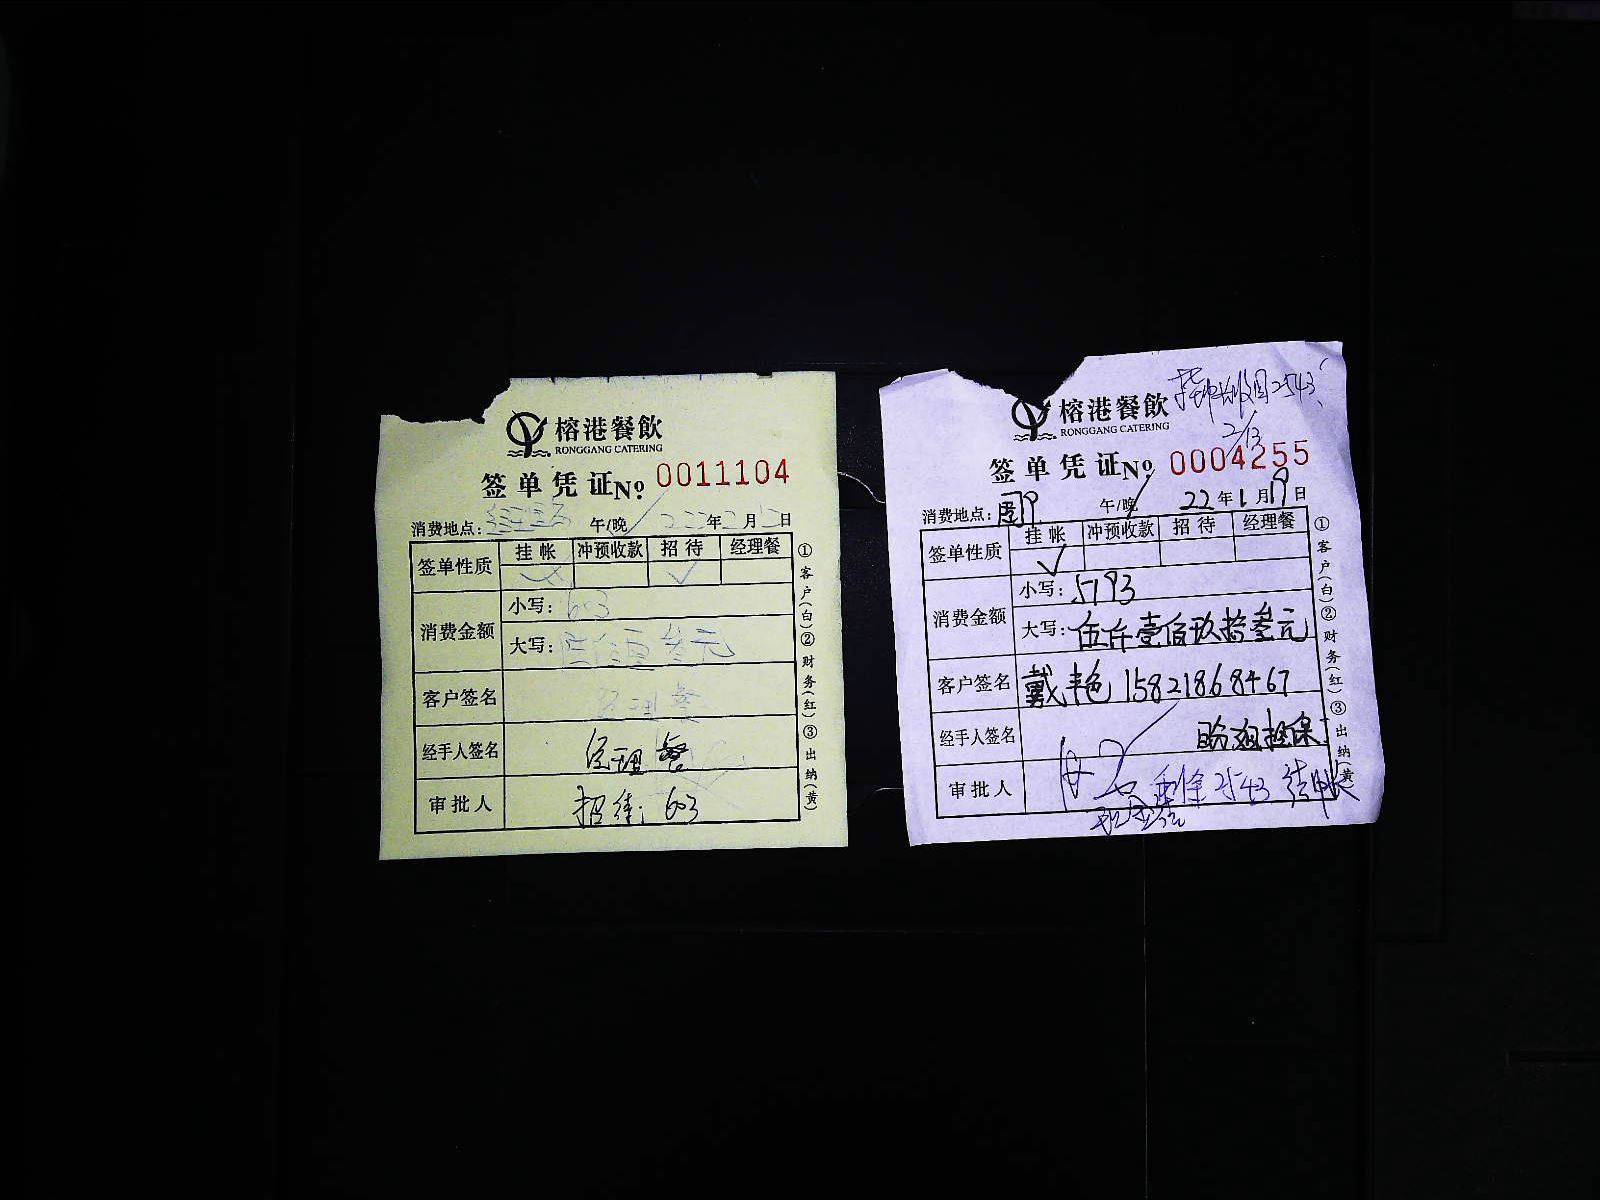 榕港餐飲
RONGGANG CATERING
签单凭证 No. 0011104
消费地点: 午/晚 年 月 日
签单性质 挂帐 冲预收款 招待 经理餐
消费金额 小写: 603
大写: 陆佰 叁元
客户签名 经理餐
经手人签名 经理餐
审批人 招待: 603
①客户(白)②财务(红)③出纳(黄)
2543
2/13
榕港餐飲
RONGGANG CATERING
签单凭证 No. 0004255
消费地点: 午/晚 22年1月19日
签单性质 挂帐 冲预收款 招待 经理餐
消费金额 小写: 5193
大写: 伍仟壹佰玖拾叁元
客户签名 戴丰艳 15821868467
经手人签名 担保
审批人 2543 结帐
①客户(白)②财务(红)③出纳(黄)